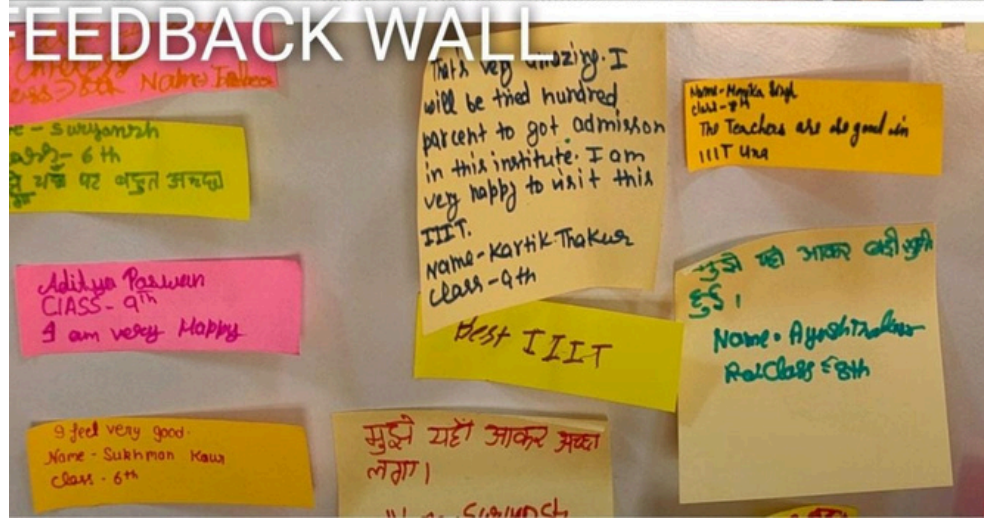 FEEDBACK WALL
class > 8th Name >
- Suryansh
- 6th
यहाँ पर बहुत अच्छा
Aditya Paswan
CLASS - 9th
I am very Happy
I feel very good.
Name - Sukhman Kaur
Class - 6th
That's very amazing. I
will be tried hundred
parcent to got admisson
in this institute. I am
very happy to visit this
IIIT.
Name - Kartik Thakur
Class - 9th
Best IIIT
मुझे यहाँ आकर अच्छा
लगा।
Suryansh
Name - Monika Singh
Class - 7th
The Teachers are also good in
IIIT Una
मुझे यहाँ आकर बड़ी खुशी
हुई।
Name - Ayush Thakur
Class = 8th